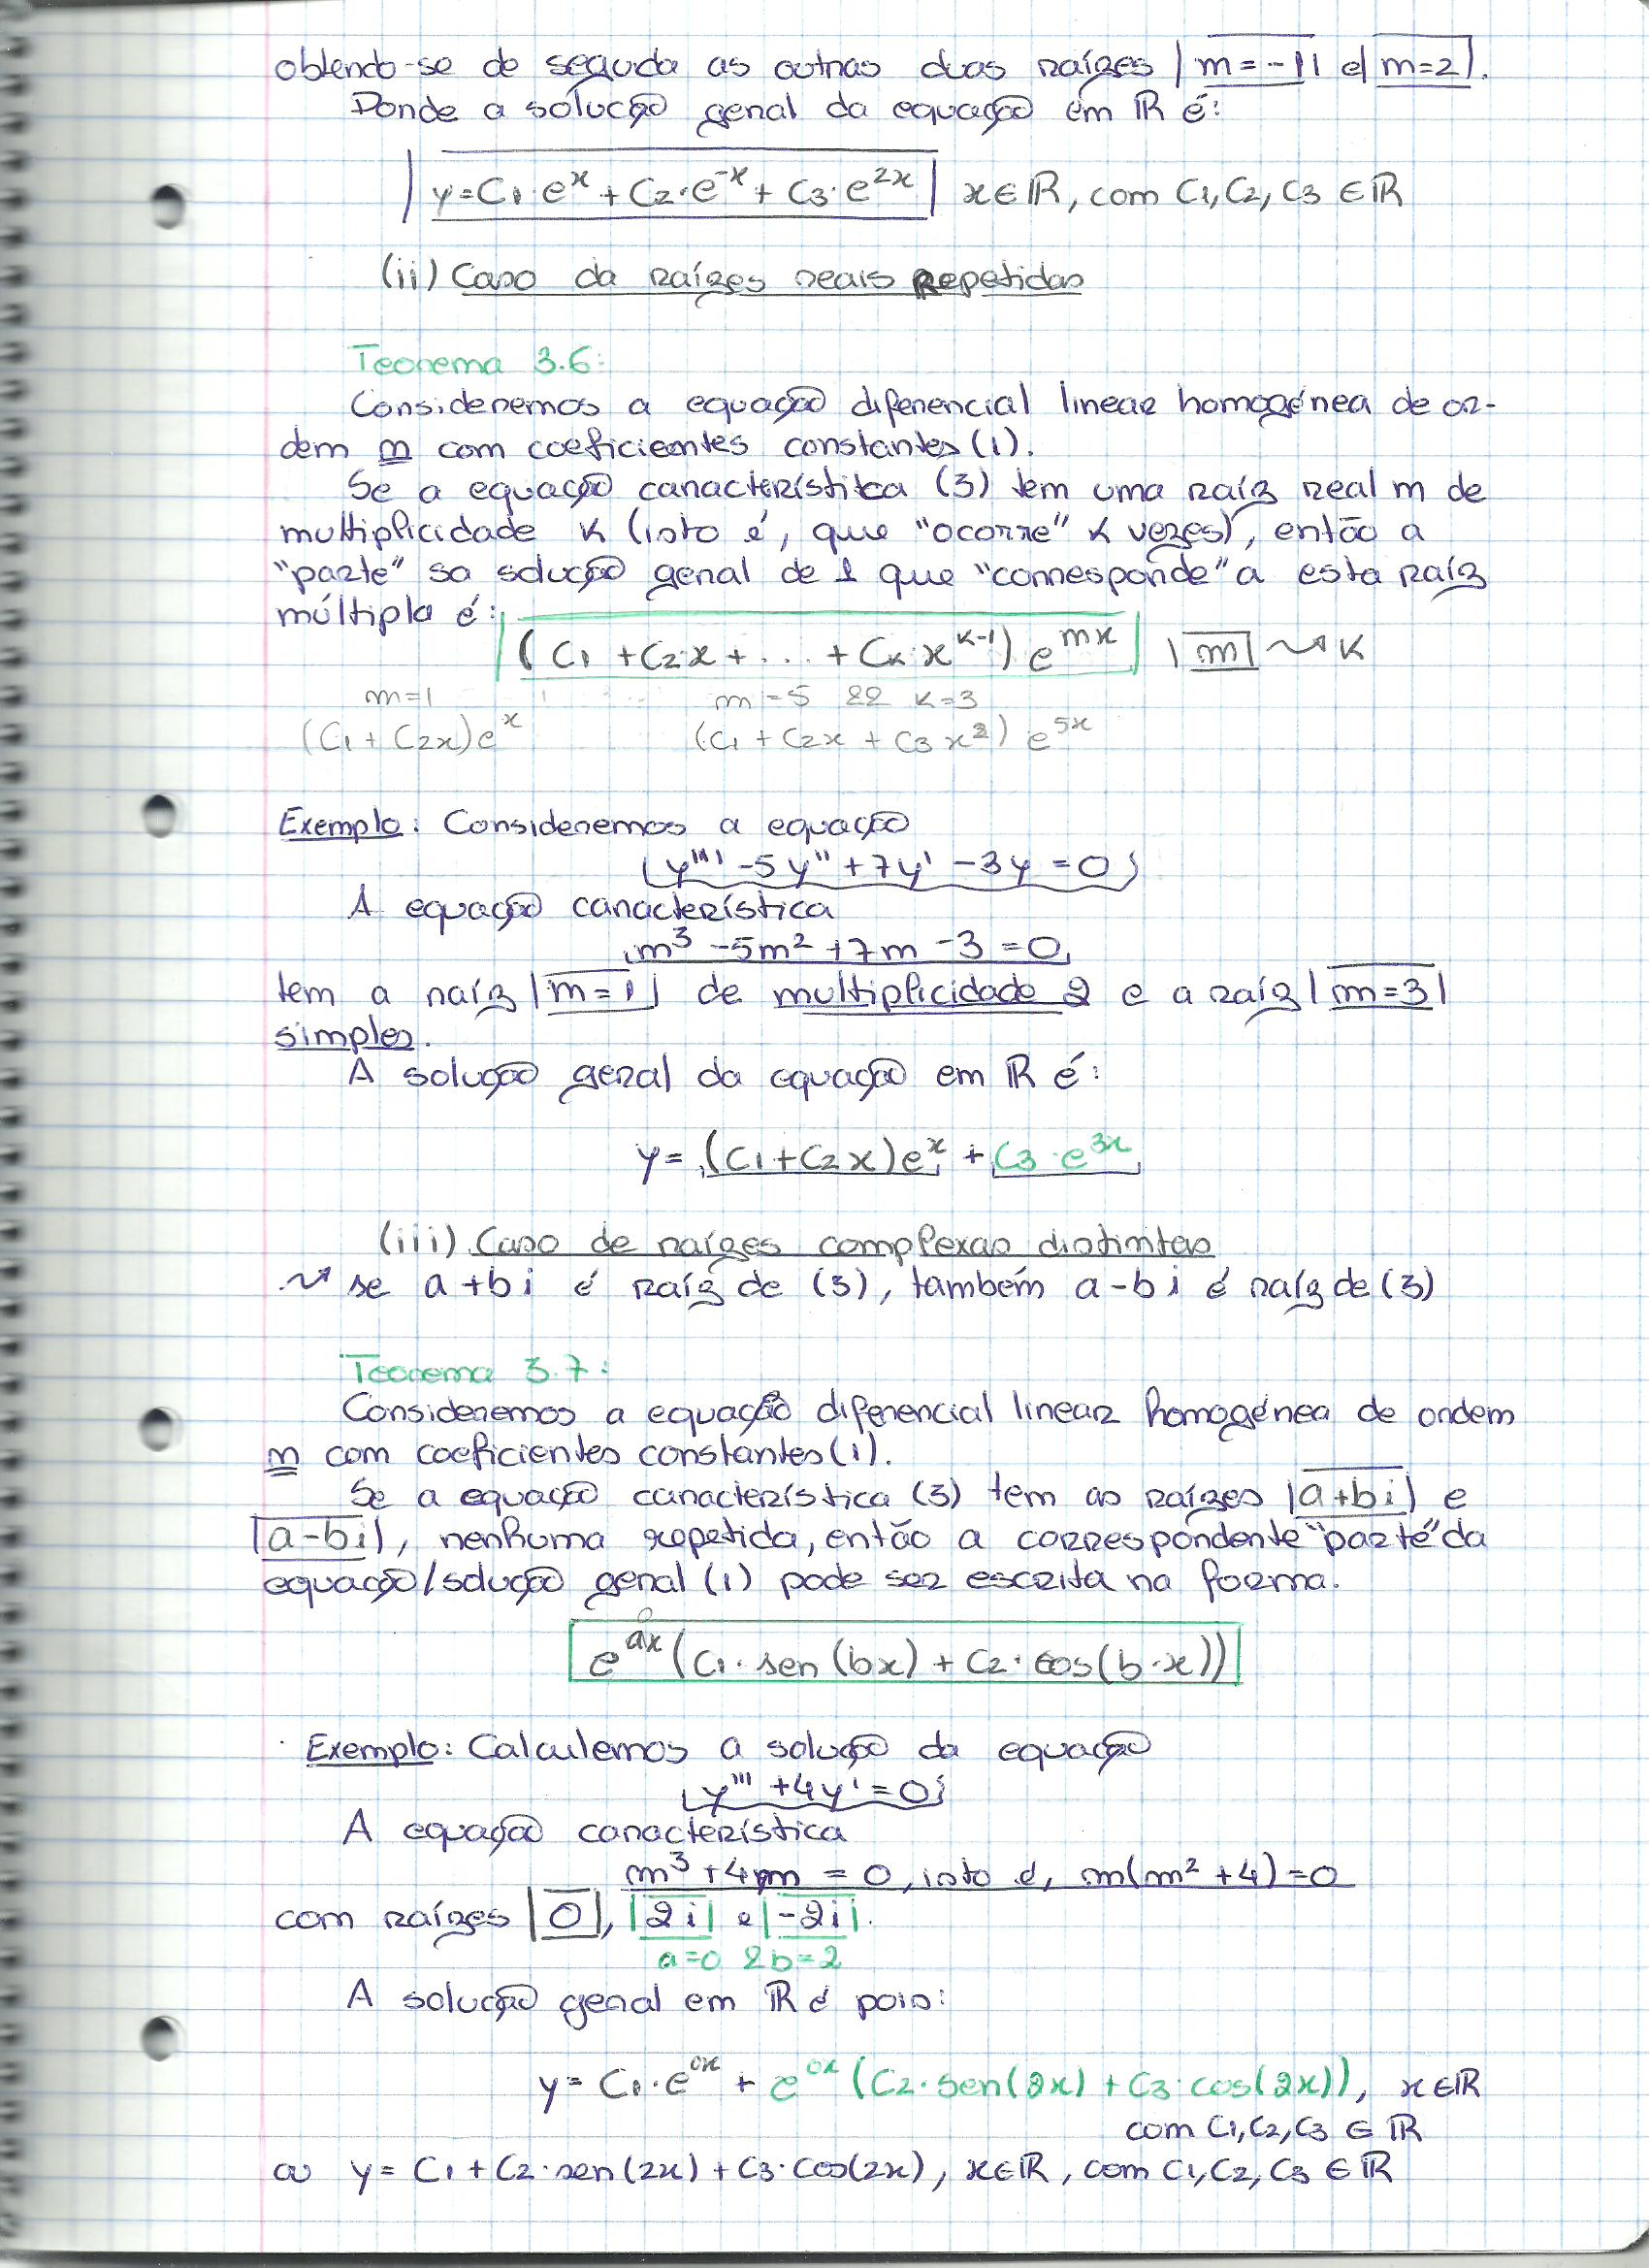 obtendo-se de seguida as outras duas raízes m=-1 e m=2.
Donde a solução geral da equação em ℝ é:
y=C1·e^x + C2·e^-x + C3·e^2x x∈ℝ, com C1, C2, C3 ∈ℝ
(ii) Caso da raízes reais Repetidas
Teorema 3.6:
Consideremos a equação diferencial linear homogénea de or-
dem n com coeficientes constantes (1).
Se a equação característica (3) tem uma raíz real m de
multiplicidade K (isto é, que "ocorre" K vezes), então a
"parte" sa solução geral de 1 que "corresponde" a esta raíz
múltipla é:
(C1 + C2x + ... + Ck x^(k-1)) e^mx m ⇝ K
m=1 m=5 && K=3
(C1 + C2x)e^x (C1 + C2x + C3x^2) e^5x
Exemplo: Consideremos a equação
y''' -5y'' + 7y' -3y = 0
A equação característica
m^3 -5m^2 +7m -3 = 0
tem a raíz m=1 de multiplicidade 2 e a raíz m=3
simples.
A solução geral da equação em ℝ é:
y= (C1+C2x)e^x + C3·e^3x
(iii) Caso de raízes complexas distintas
⇝ se a+bi é raíz de (3), também a-bi é raíz de (3)
Teorema 3.7:
Consideremos a equação diferencial linear homogénea de ordem
n com coeficientes constantes (1).
Se a equação característica (3) tem as raízes a+bi e
a-bi, nenhuma repetida, então a correspondente "parte" da
equação/solução geral (1) pode ser escrita na forma.
e^ax (C1·sen(bx) + C2·cos(b·x))
Exemplo: Calculemos a solução da equação
y''' +4y' = 0
A equação característica
m^3 +4m = 0, isto é, m(m^2 +4)=0
com raízes 0, 2i e -2i.
a=0 & b=2
A solução geral em ℝ é pois:
y= C1·e^0x + e^0x (C2·sen(2x) + C3·cos(2x)), x∈ℝ
com C1, C2, C3 ∈ ℝ
ou y= C1 + C2·sen(2x) + C3·cos(2x), x∈ℝ, com C1, C2, C3 ∈ ℝ